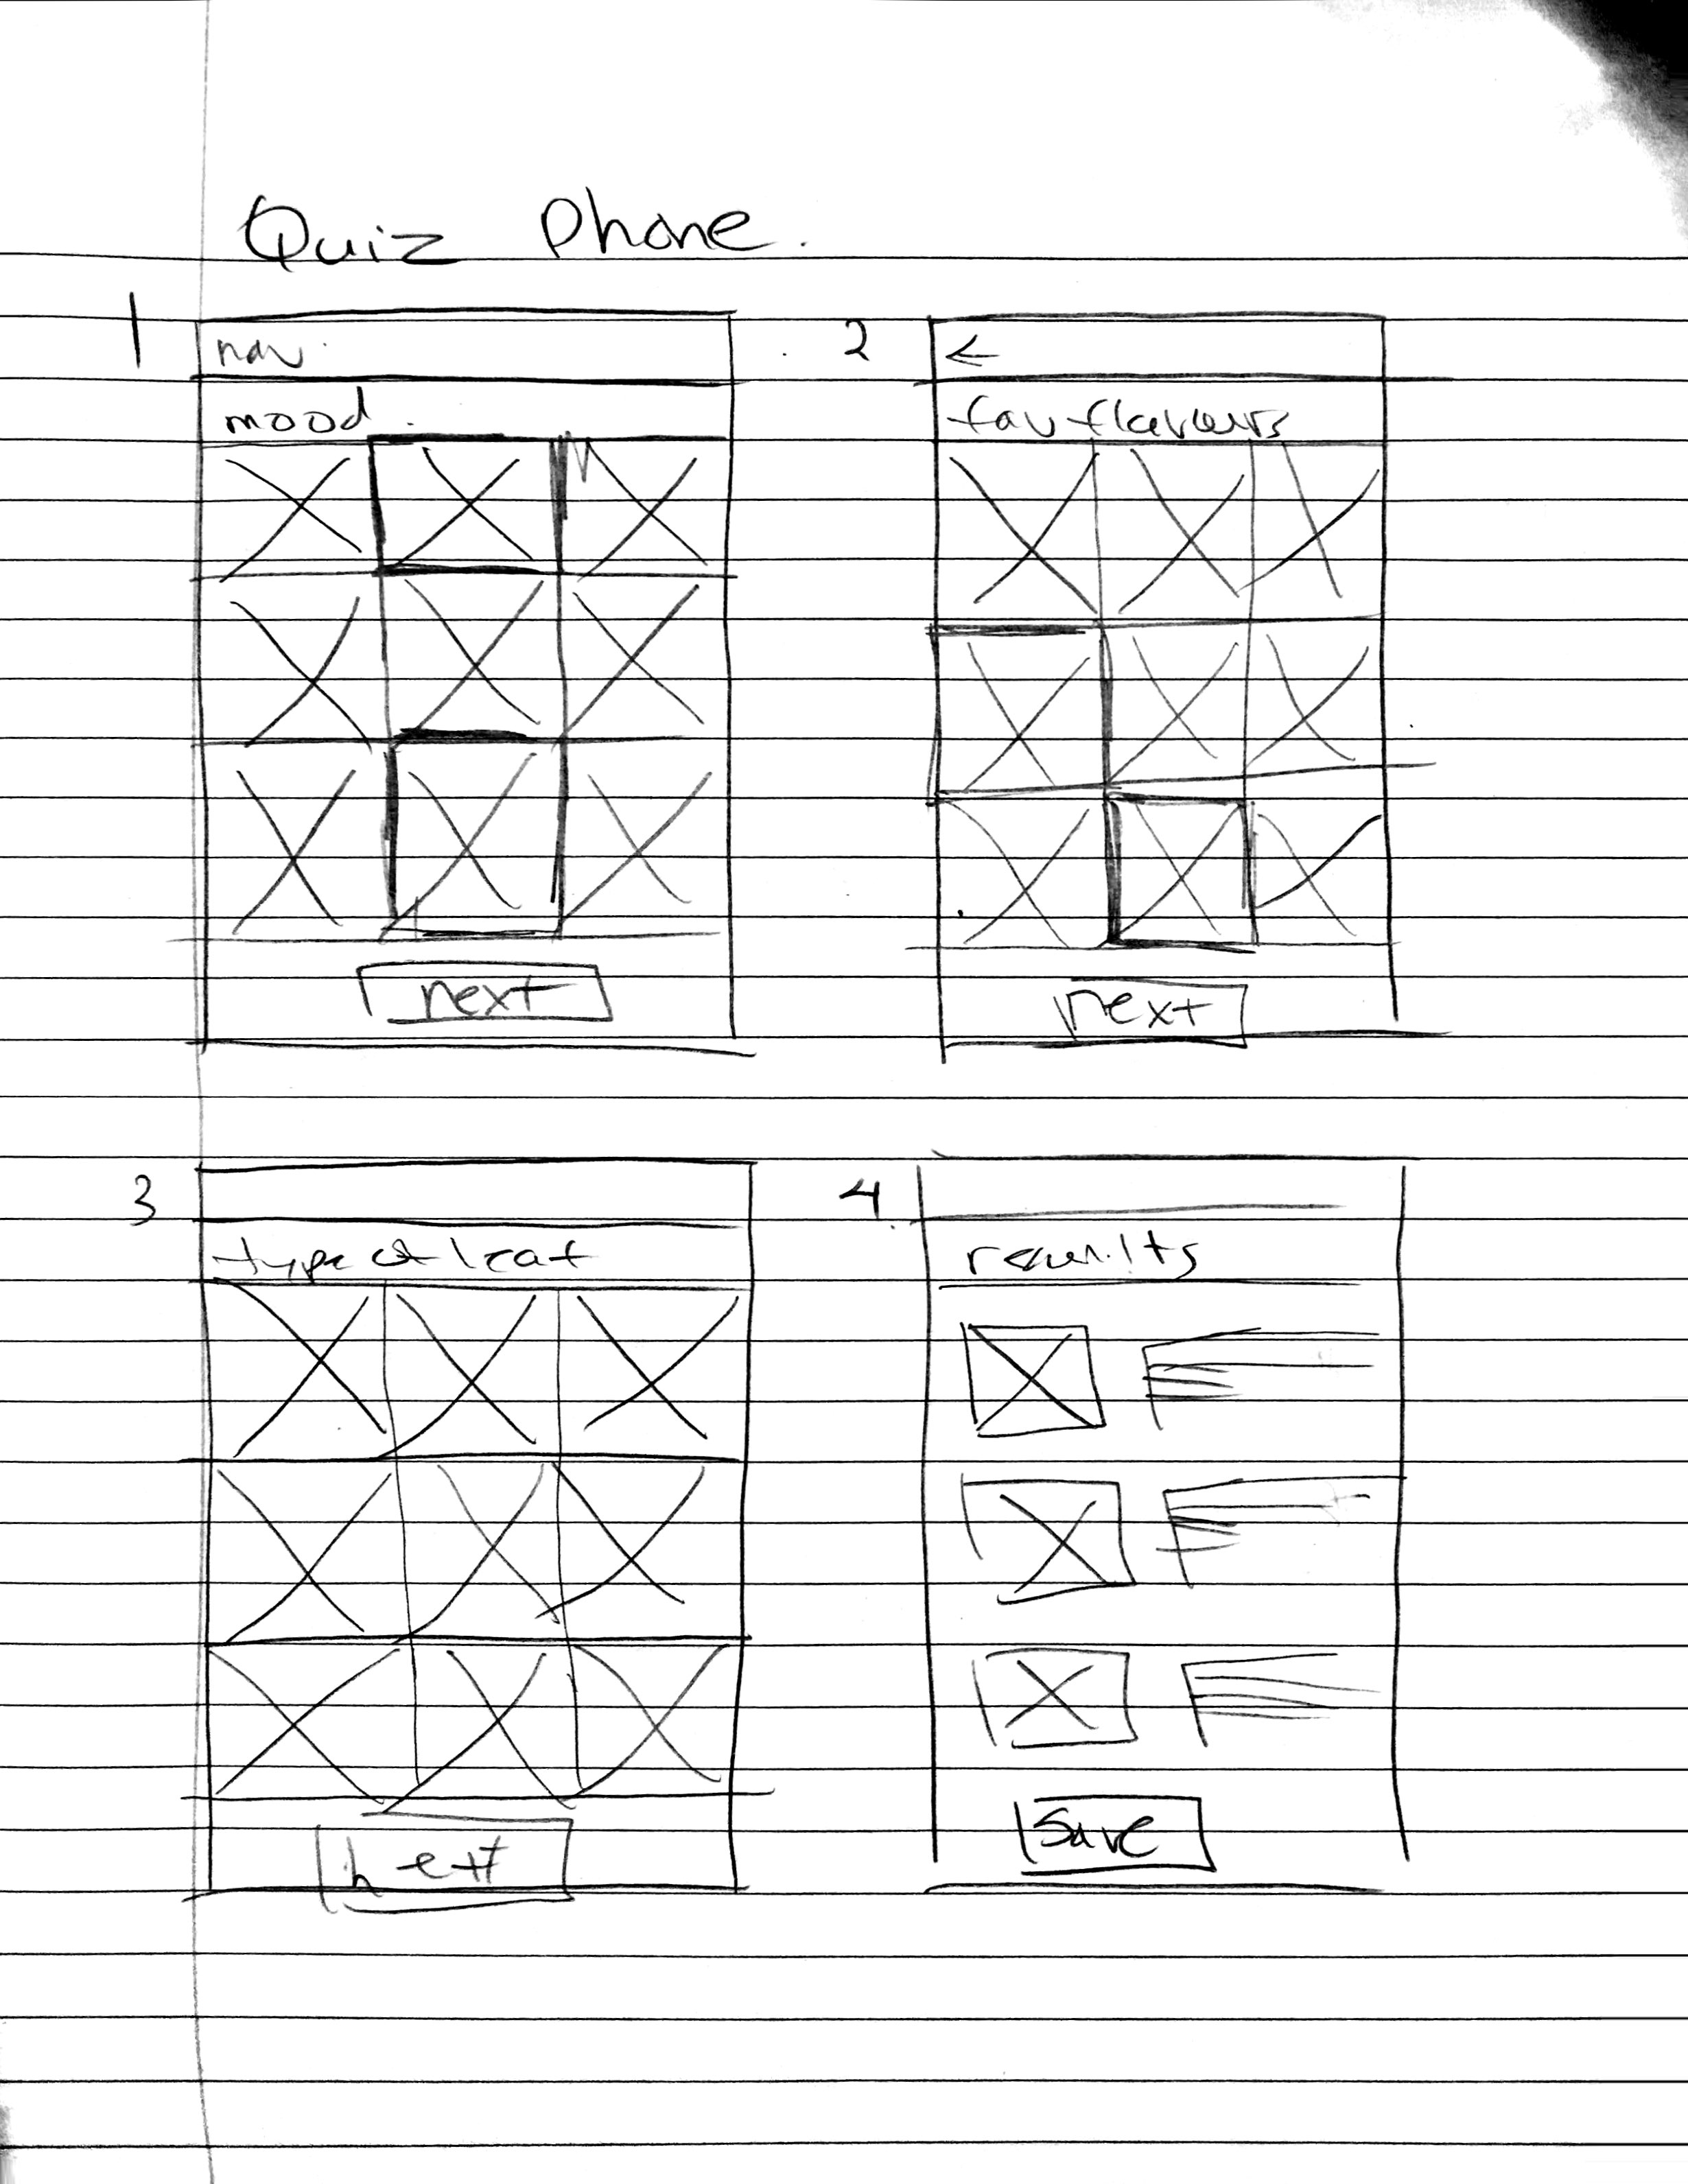 Quiz Phone.
1
nav
mood
next
2
←
fav flavours
next
3
type of leaf
next
4
results
save